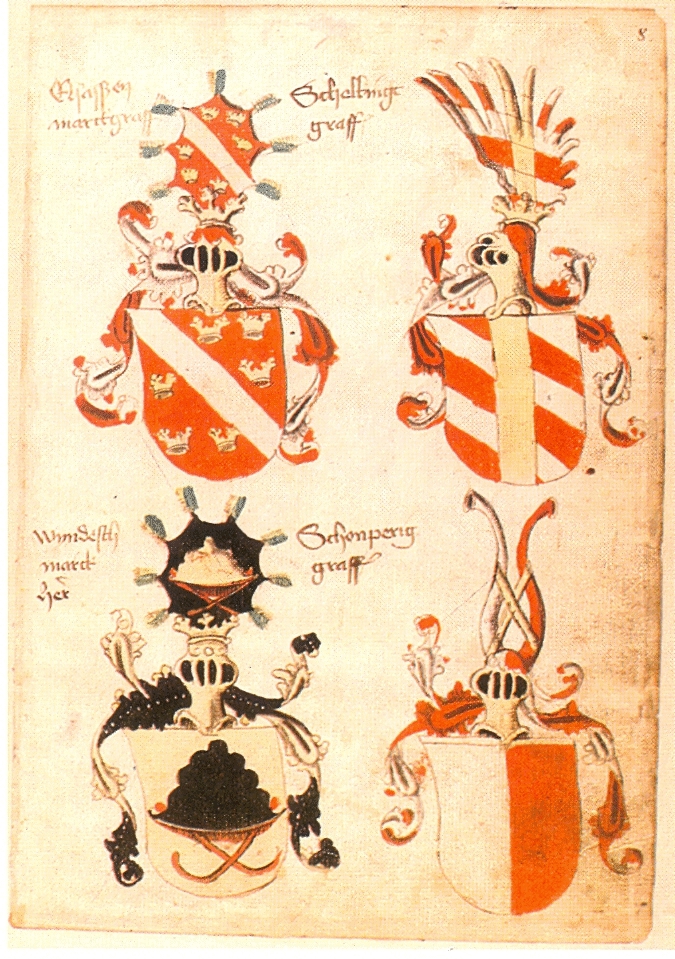 8
Elsassen
marckgraff
Schelking
graff
Windesch
marck
her
Schonperig
graff